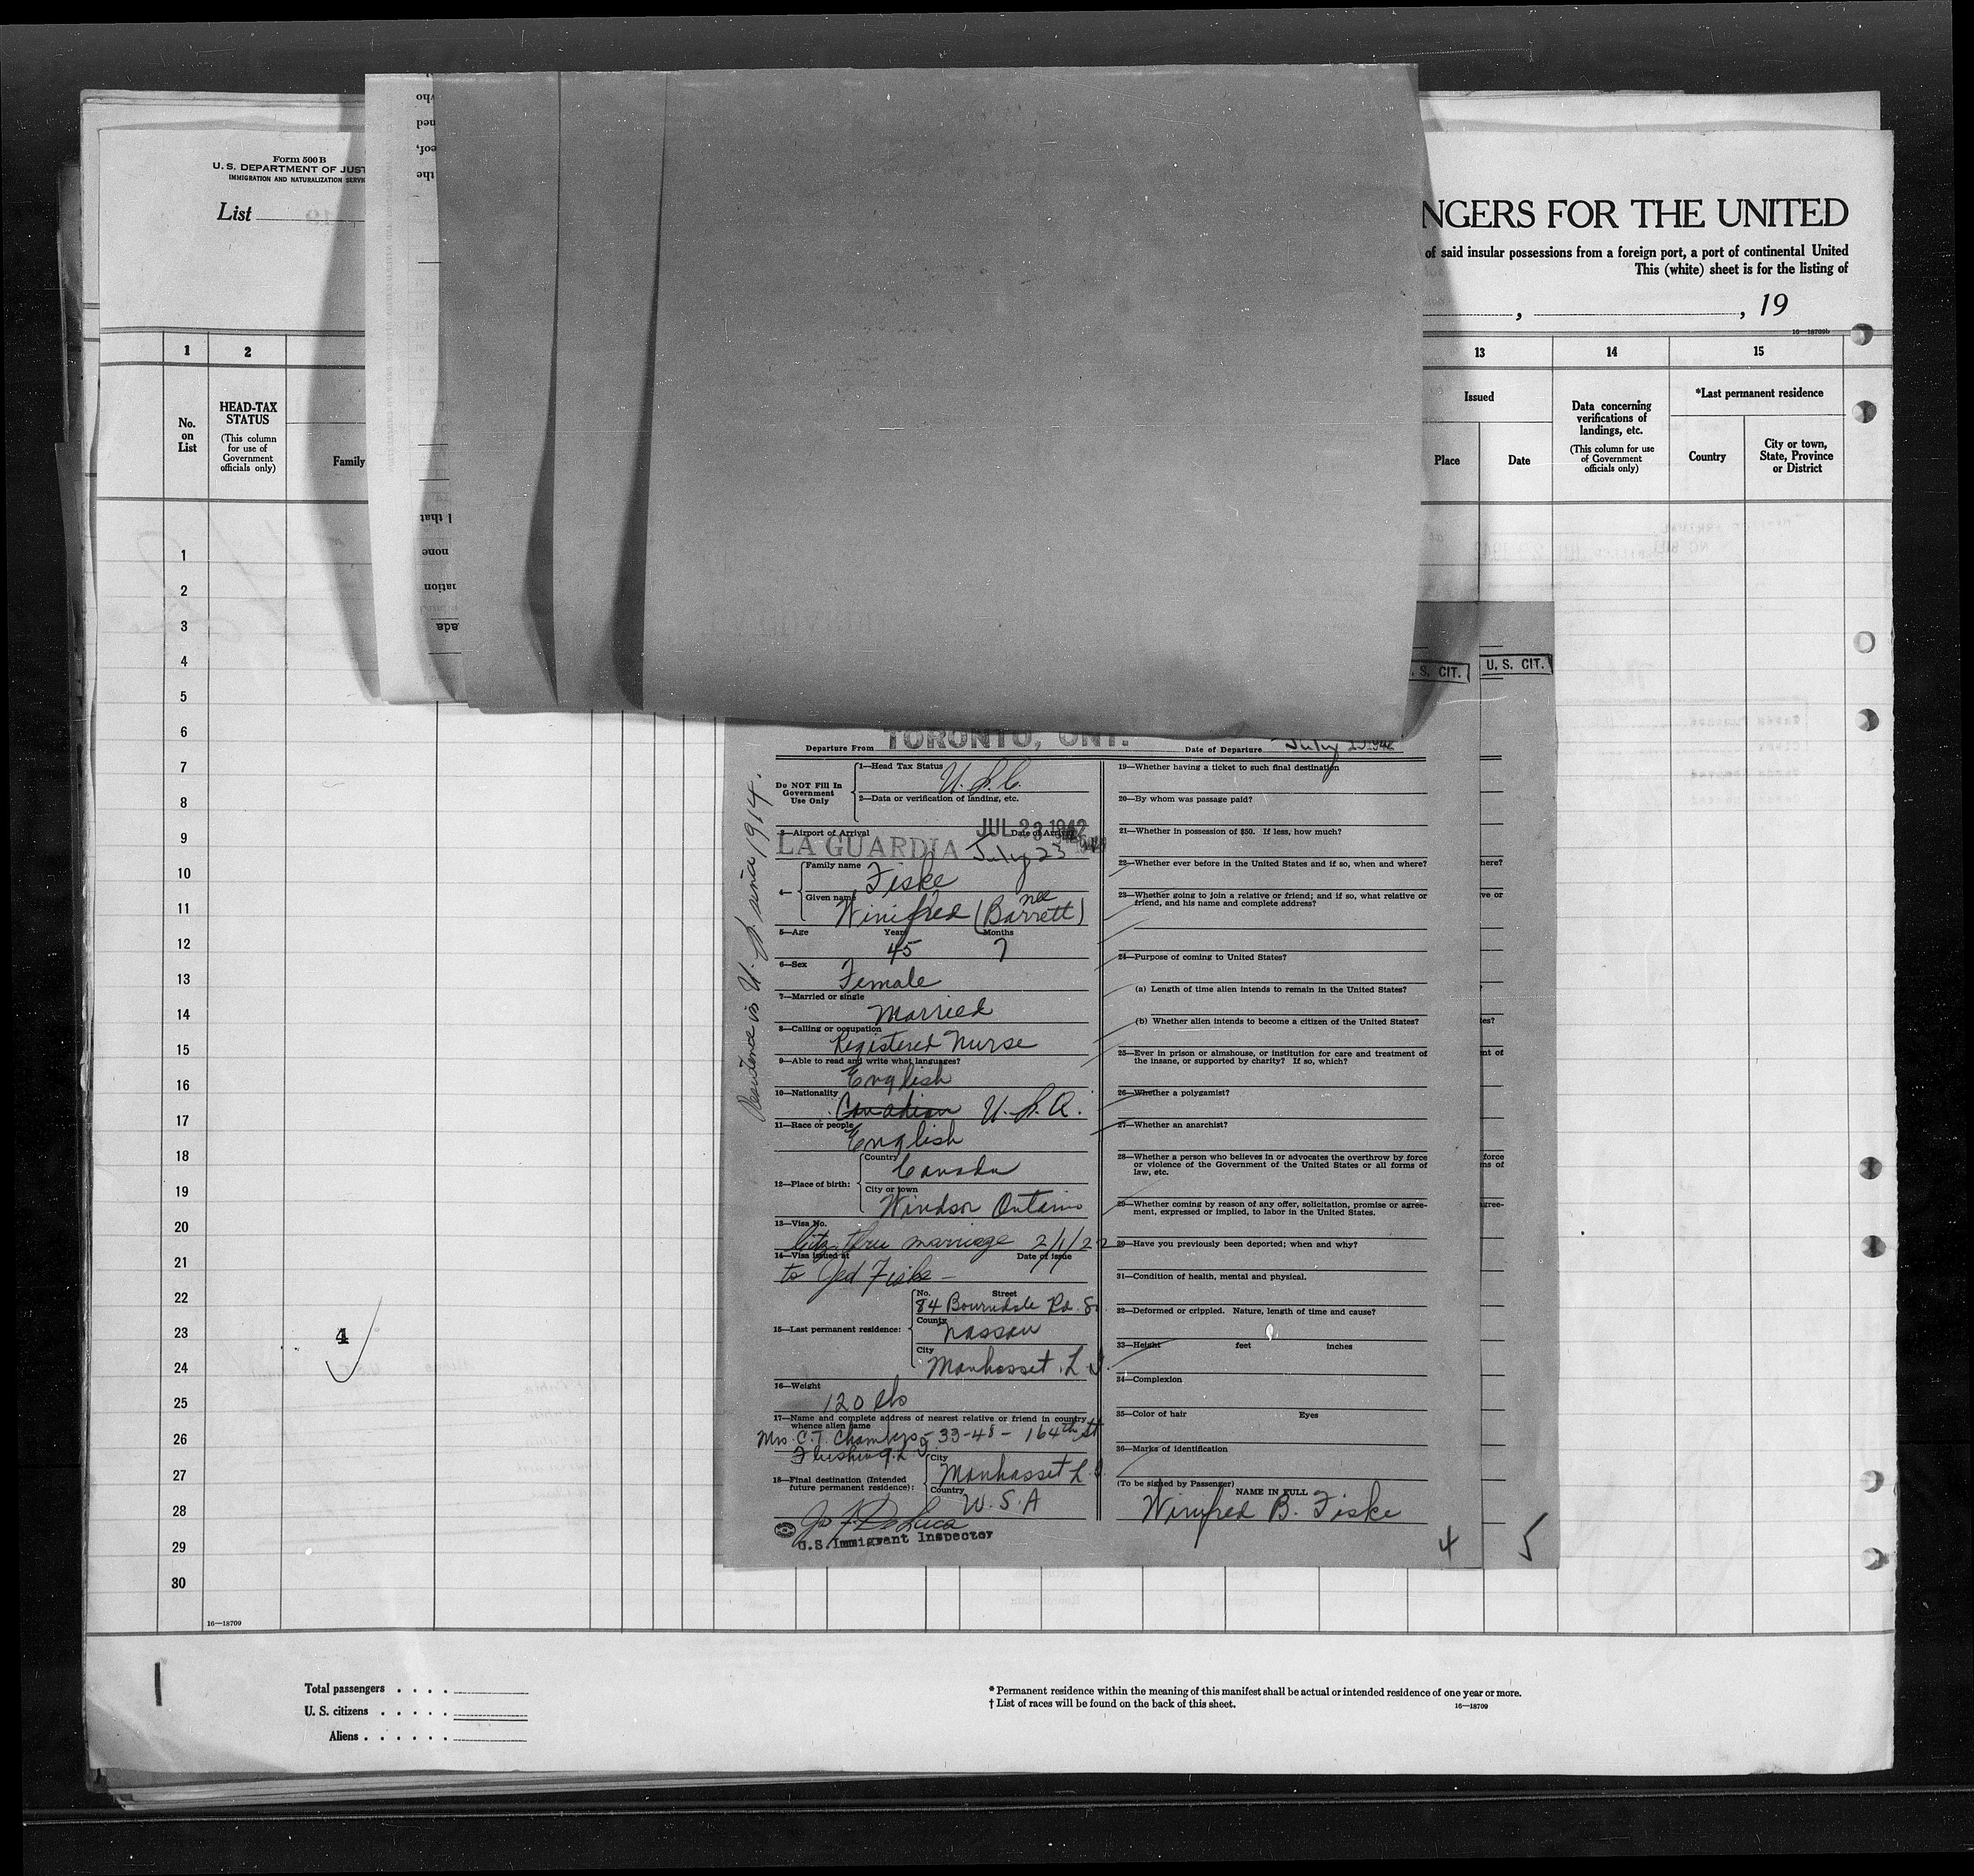 Form 500 B
U. S. DEPARTMENT OF JUST
IMMIGRATION AND NATURALIZATION SERVIC
List
NGERS FOR THE UNITED
of said insular possessions from a foreign port, a port of continental United
This (white) sheet is for the listing of
, , 19
16—18709b
1 2 13 14 15
No. on List
HEAD-TAX STATUS
(This column for use of Government officials only)
Family
Issued
Place Date
Data concerning verifications of landings, etc.
(This column for use of Government officials only)
*Last permanent residence
Country
City or town, State, Province or District
who
ned
eof,
the
I that
none
nation
ada
1
2
3
4
5
6
7
8
9
10
11
12
13
14
15
16
17
18
19
20
21
22
23
24
25
26
27
28
29
30
4
. S. CIT.
U. S. CIT.
Departure From TORONTO, ONT. Date of Departure July 23 1942
Residence in U. S. since 1914.
Do NOT Fill In Government Use Only
1—Head Tax Status U.S.C.
2—Data or verification of landing, etc.
3—Airport of Arrival Date of Arrival
JUL 23 1942
LA GUARDIA July 23
4— Family name Fiske
Given name Winifred (nee Barrett)
5—Age Years 45 Months 7
6—Sex Female
7—Married or single Married
8—Calling or occupation Registered Nurse
9—Able to read and write what languages? English
10—Nationality Canadian U.S.A.
11—Race or people English
12—Place of birth: Country Canada
City or town Windsor Ontario
13—Visa No. Citz. thru marriage 2/1/22
14—Visa issued at Date of issue
to Jed Fiske —
15—Last permanent residence: No. Street 84 Bourndale Rd. So.
County Nassau
City Manhasset, L. I.
16—Weight 120 lbs
17—Name and complete address of nearest relative or friend in country whence alien came
Mrs. C. T. Chambers - 33-48 - 164th St
Flushing, L. I.
18—Final destination (Intended future permanent residence): City Manhasset L. I.
Country U.S.A
U.S. Immigrant Inspector
19—Whether having a ticket to such final destination
20—By whom was passage paid?
21—Whether in possession of $50. If less, how much?
22—Whether ever before in the United States and if so, when and where?
23—Whether going to join a relative or friend; and if so, what relative or
friend, and his name and complete address?
24—Purpose of coming to United States?
(a) Length of time alien intends to remain in the United States?
(b) Whether alien intends to become a citizen of the United States?
25—Ever in prison or almshouse, or institution for care and treatment of
the insane, or supported by charity? If so, which?
26—Whether a polygamist?
27—Whether an anarchist?
28—Whether a person who believes in or advocates the overthrow by force
or violence of the Government of the United States or all forms of
law, etc.
29—Whether coming by reason of any offer, solicitation, promise or agree-
ment, expressed or implied, to labor in the United States.
30—Have you previously been deported; when and why?
31—Condition of health, mental and physical.
32—Deformed or crippled. Nature, length of time and cause?
33—Height feet inches
34—Complexion
35—Color of hair Eyes
36—Marks of identification
(To be signed by Passenger) NAME IN FULL
Winifred B. Fiske
4
5
here?
ve or
?
tes?
nt of
force
ms of
agree-
16—18709
Total passengers . . . .
U. S. citizens . . . . .
Aliens . . . . . .
* Permanent residence within the meaning of this manifest shall be actual or intended residence of one year or more.
† List of races will be found on the back of this sheet.
16—18709